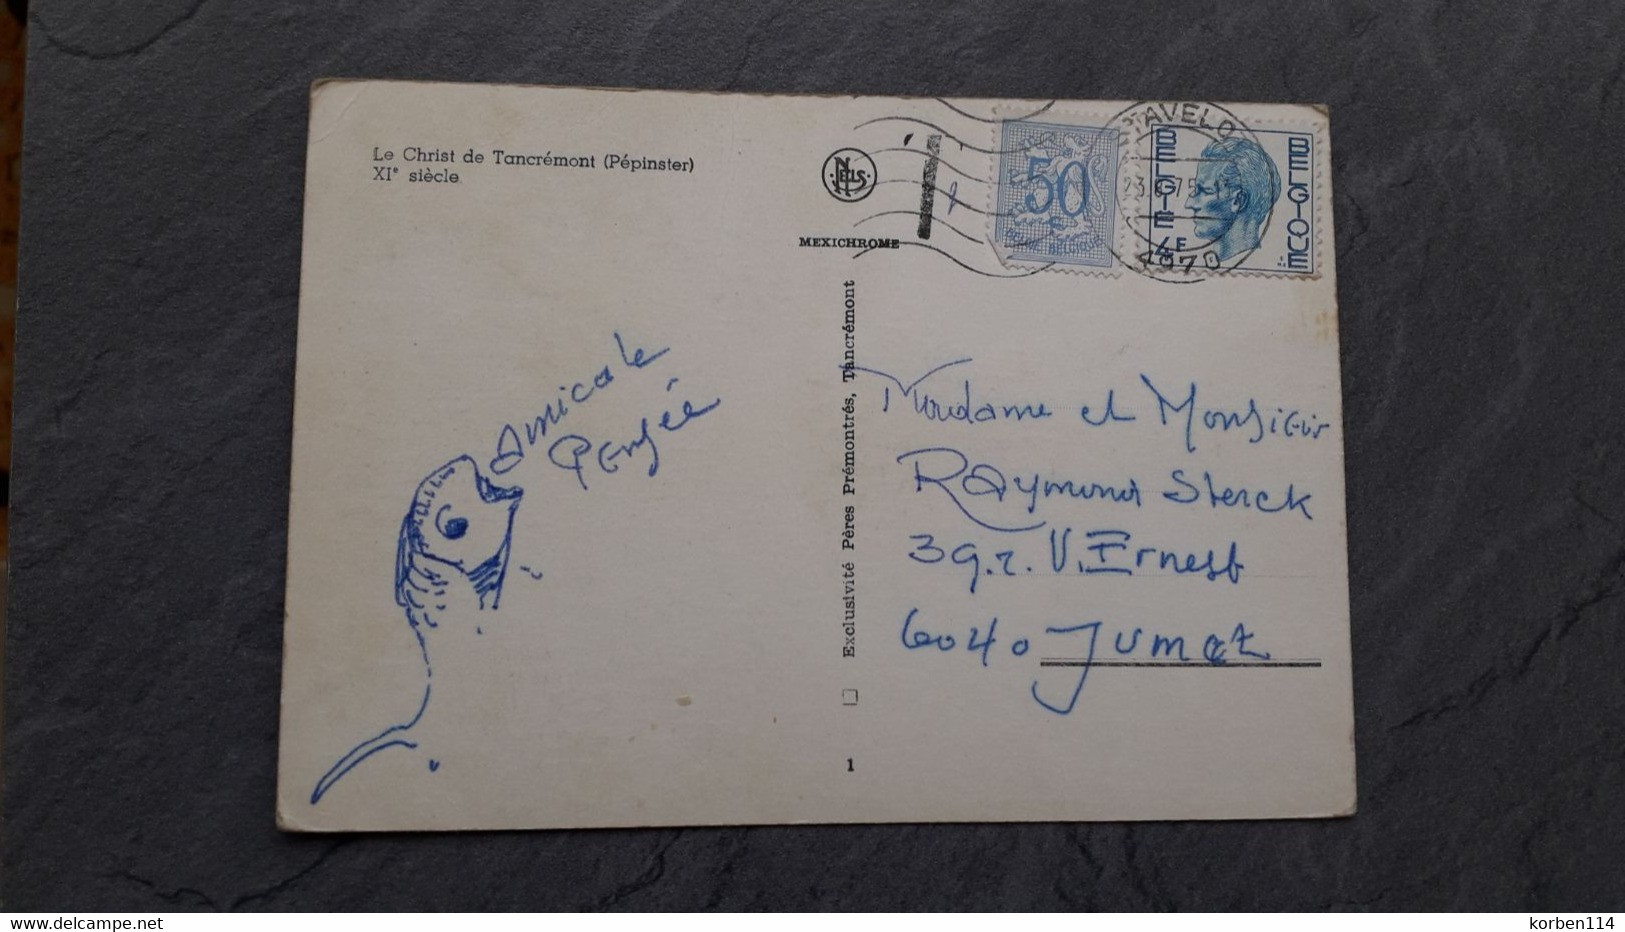 Le Christ de Tancrémont (Pépinster)
XIe siècle.
NELS
MEXICHROME
50
BELGIË BELGIQUE
BELGIE 4F
BELGIQUE
STAVELOT
4970
Amicale
Pensée
Exclusivité Pères Prémontrés, Tancrémont
1
Madame et Monsieur
Raymond Sterck
39. r. V. Ernest
6040 Jumet
delcampe.net
korben114